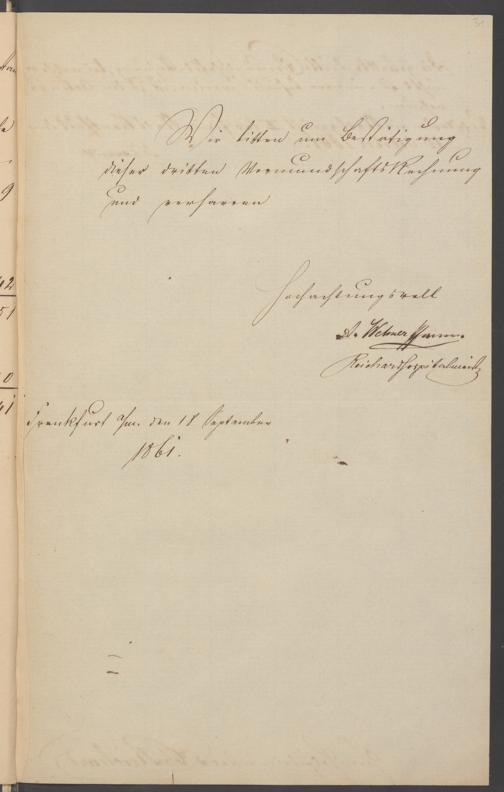 Wir bitten um Bestätigung
dieser dritten Vormundschafts Rechnung
und verharren
Hochachtungsvoll
Frankfurt a/m. den 18 September
1861.